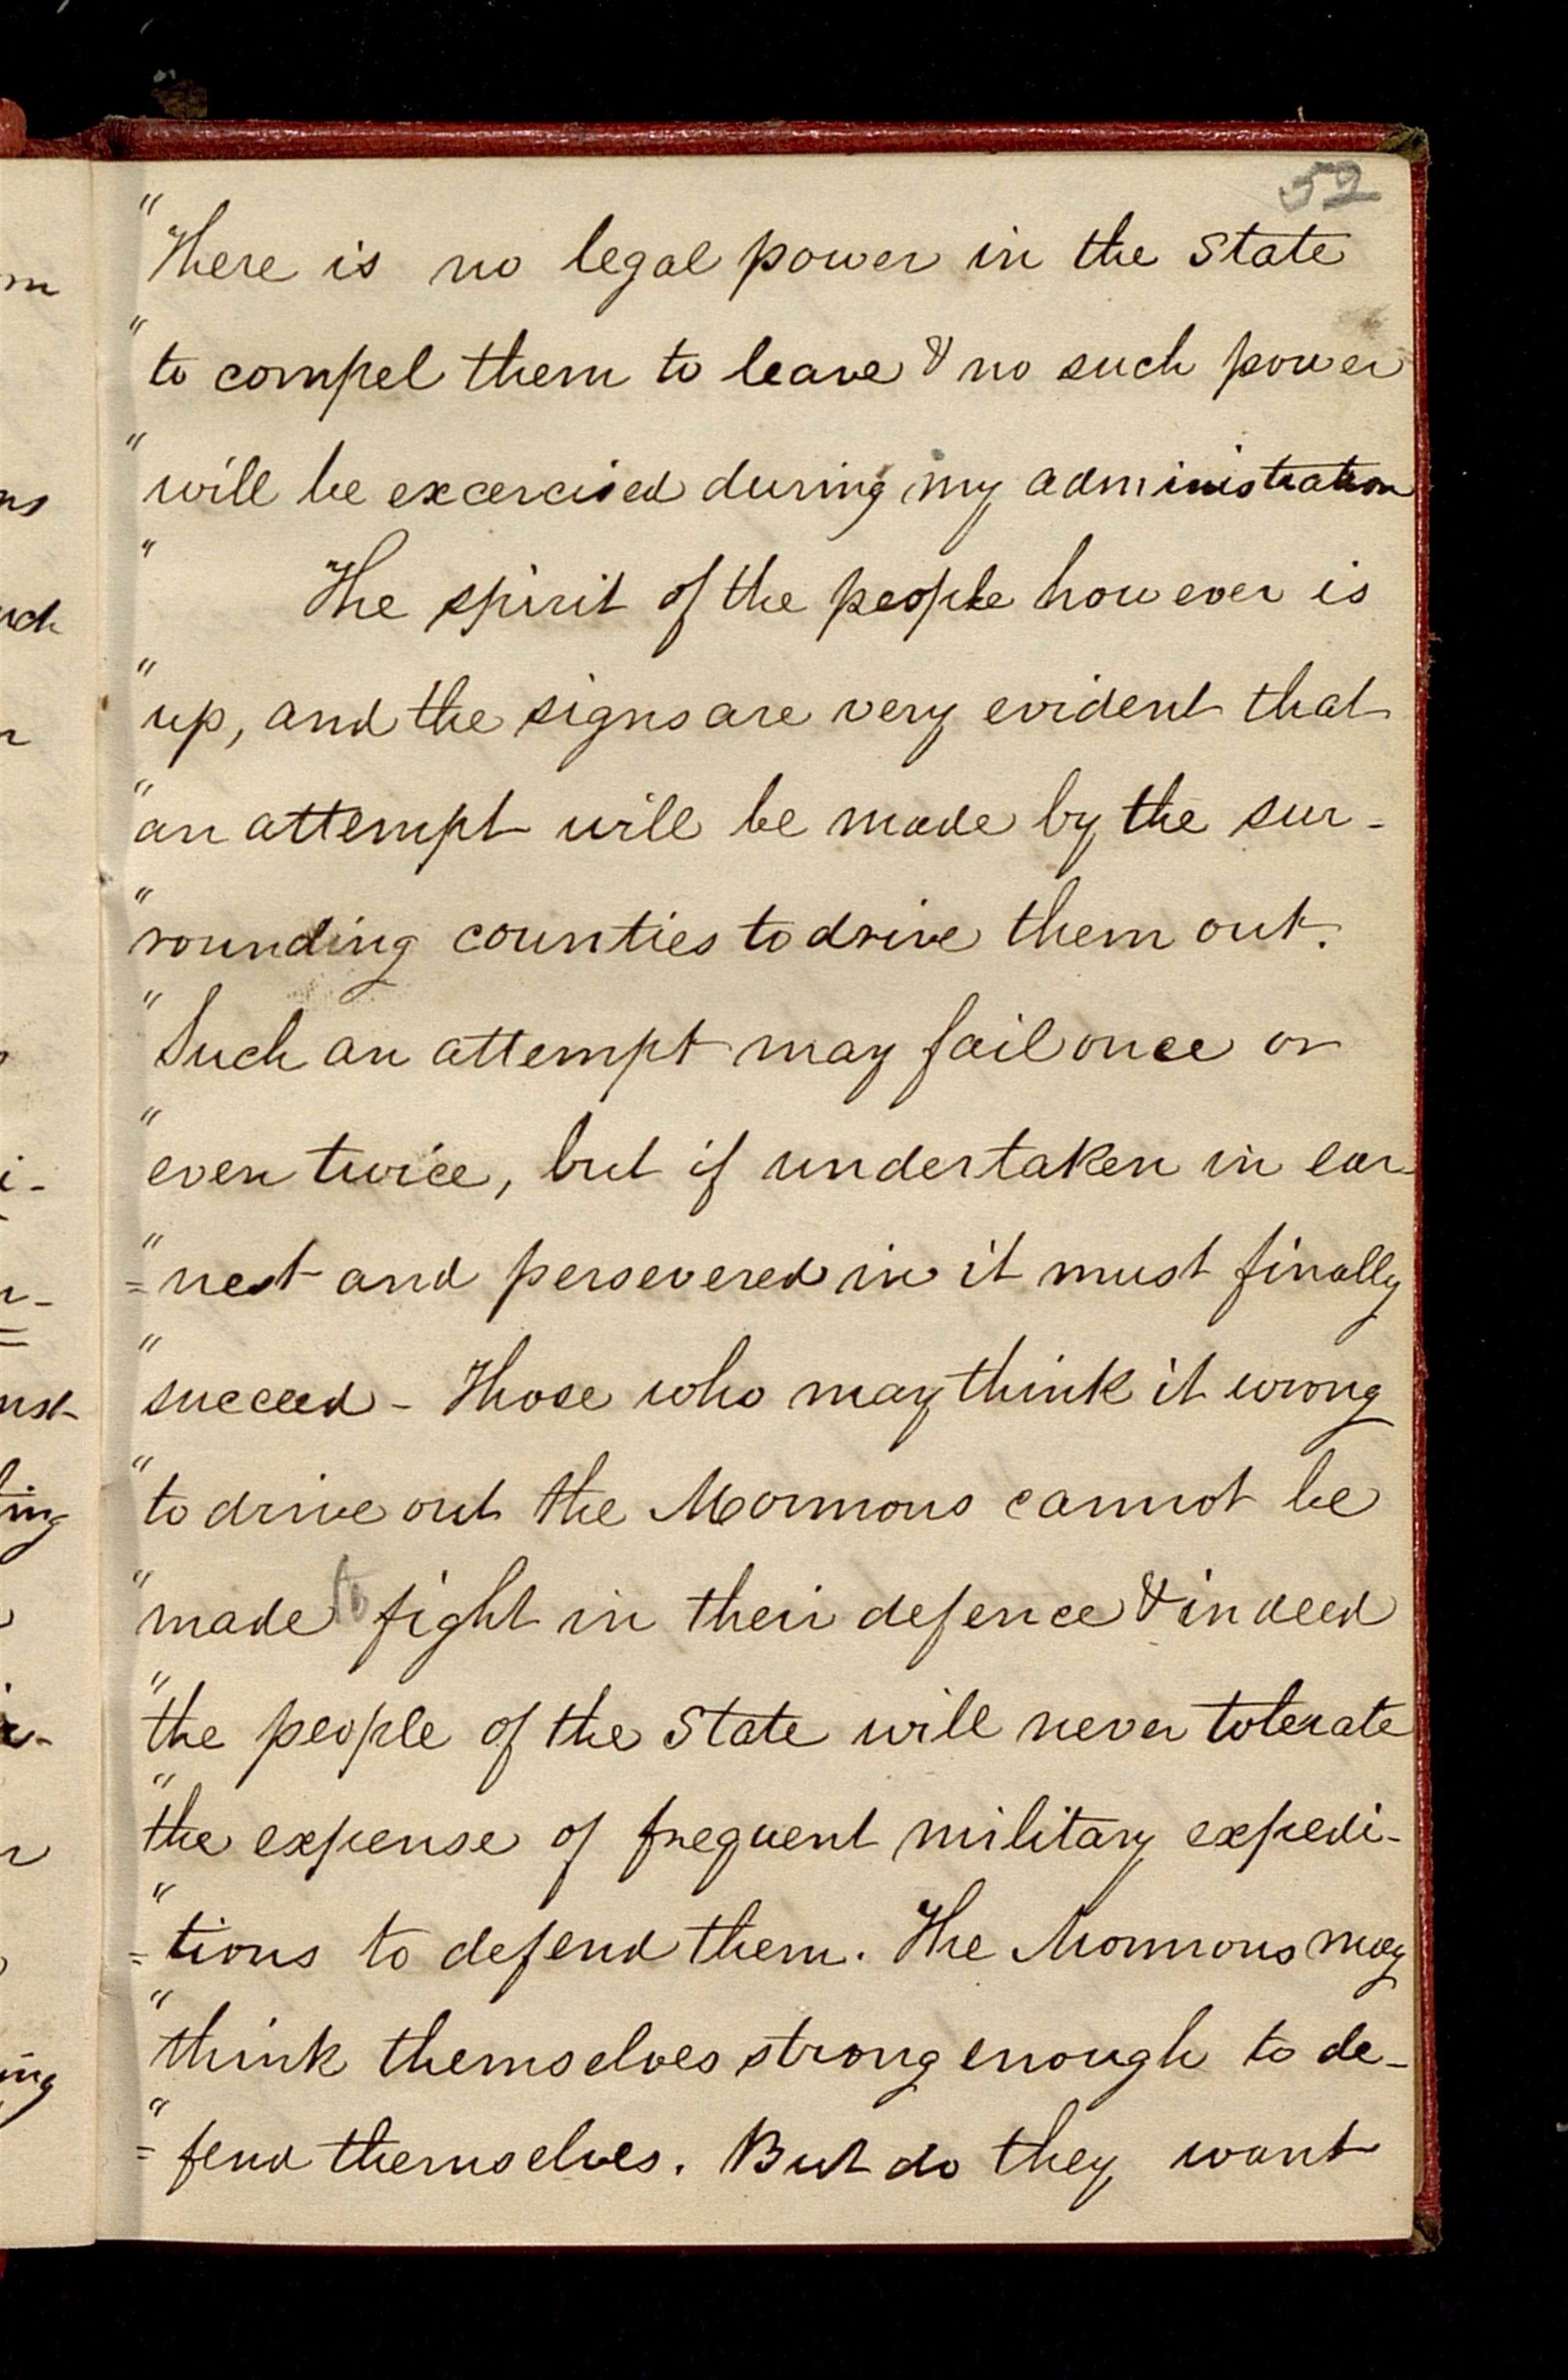 52
"There is no legal power in the State
"to compel them to leave & no such power
"will be excercised during my administration
" The spirit of the people however is
"up, and the signs are very evident that
"an attempt will be made by the sur-
"rounding counties to drive them out.
"Such an attempt may fail once or
"even twice, but if undertaken in ear
"=nest and persevered in it must finally
"succeed - Those who may think it wrong
"to drive out the Mormons cannot be
"made to fight in their defence & indeed
"the people of the State will never tolerate
"the expense of frequent military expedi-
"=tions to defend them. The Mormons may
"think themselves strong enough to de-
"=fend themselves. But do they want